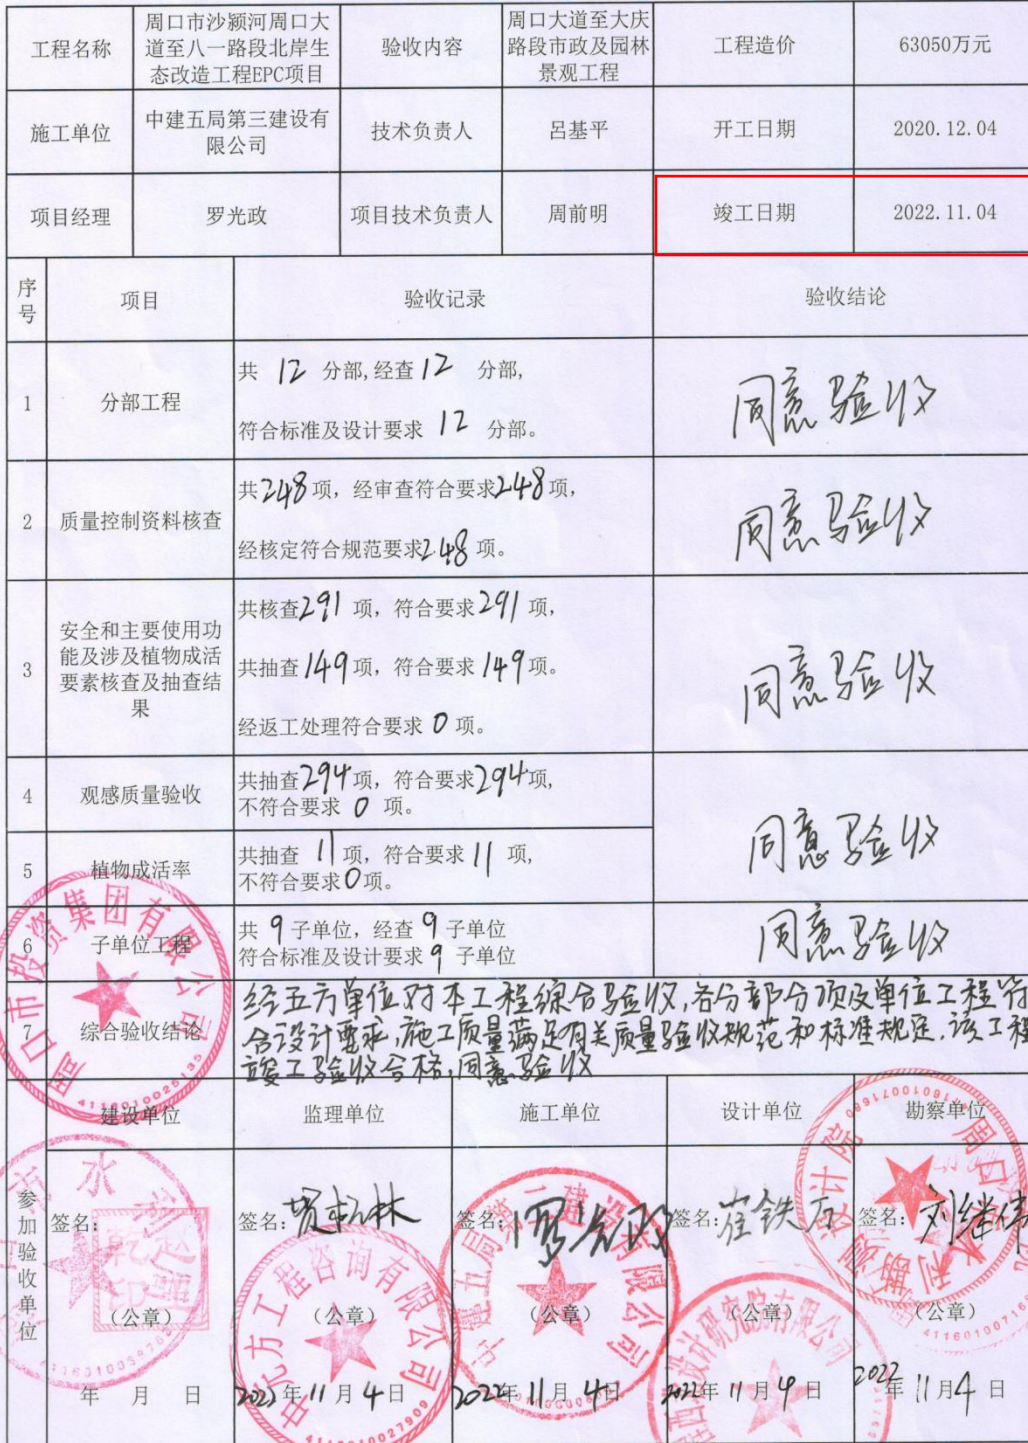 工程名称
周口市沙颍河周口大
道至八一路段北岸生
态改造工程EPC项目
验收内容
周口大道至大庆
路段市政及园林
景观工程
工程造价
63050万元
施工单位
中建五局第三建设有
限公司
技术负责人
吕基平
开工日期
2020.12.04
项目经理
罗光政
项目技术负责人
周前明
竣工日期
2022.11.04
序号
项目
验收记录
验收结论
1
分部工程
共 12 分部,经查12 分部,
符合标准及设计要求 12 分部。
同意验收
2
质量控制资料核查
共248项，经审查符合要求248项，
经核定符合规范要求248 项。
同意验收
3
安全和主要使用功
能及涉及植物成活
要素核查及抽查结
果
共核查291 项，符合要求291项，
共抽查149项，符合要求149项。
经返工处理符合要求 0 项。
同意验收
4
观感质量验收
共抽查294项，符合要求294项，
不符合要求 0 项。
5
植物成活率
共抽查 11项，符合要求11 项，
不符合要求0项。
同意验收
6
子单位工程
共 9子单位，经查 9子单位
符合标准及设计要求9 子单位
同意验收
7
综合验收结论
经五方单位对本工程综合验收,各分部分项及单位工程符
合设计要求,施工质量满足有关质量验收规范和标准规定,该工程
竣工验收合格,同意验收
参加验收单位
建设单位
监理单位
施工单位
设计单位
勘察单位
签名：
签名：
签名：罗光政
签名：崔铁万
签名：刘继伟
（公章）
（公章）
（公章）
（公章）
年 月 日
2022年11月4日
2022年11月4日
2022年11月4日
2022年11月4日
周口市投资集团有限公司
4116010025135
工程咨询有限公司
4116010027909
设计研究院有限公司